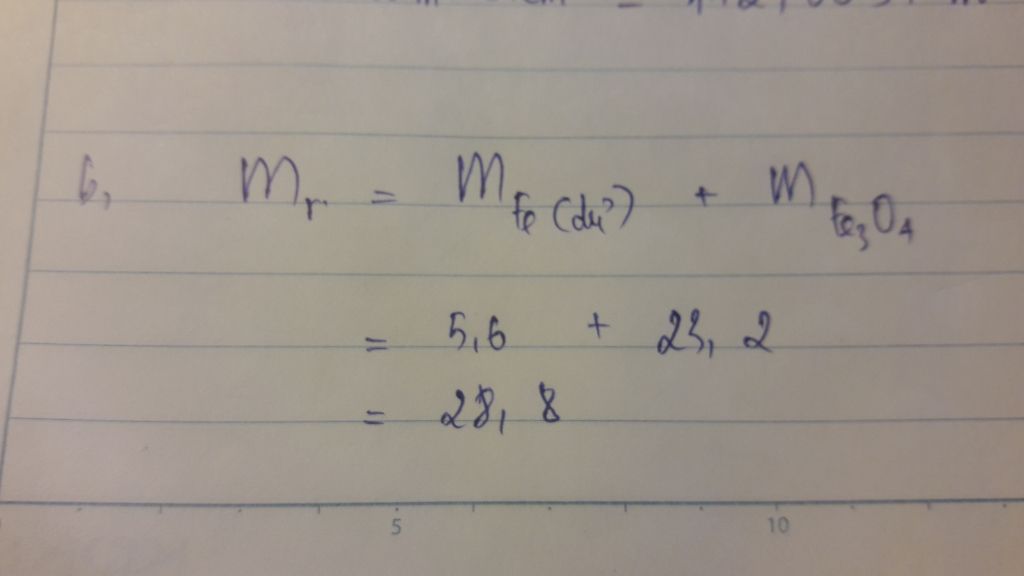 6, m_r = m_Fe (dư) + m_Fe₃O₄
= 5,6 + 23, 2
= 28, 8
5 10